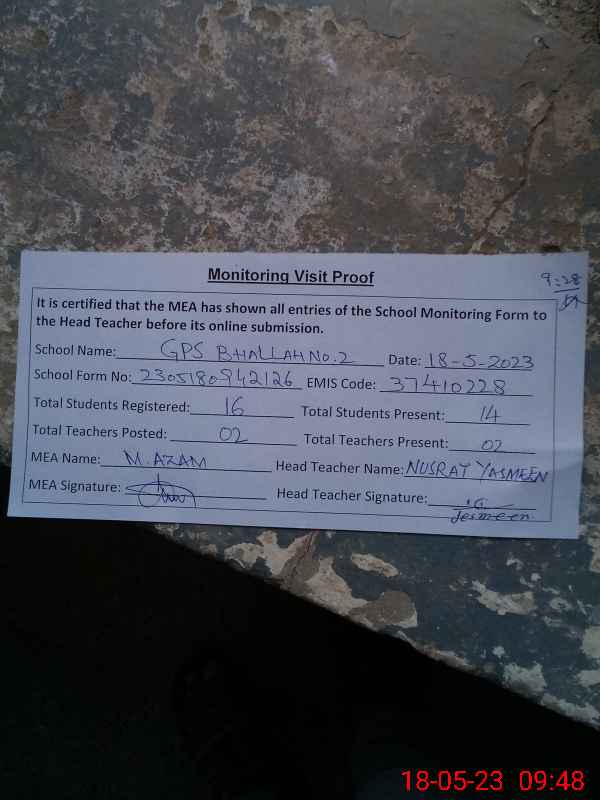 Monitoring Visit Proof
9:28
It is certified that the MEA has shown all entries of the School Monitoring Form to
the Head Teacher before its online submission.
School Name: GPS BHALLAH NO. 2 Date: 18-5-2023
School Form No: 2305180942126 EMIS Code: 37410228
Total Students Registered: 16 Total Students Present: 14
Total Teachers Posted: 02 Total Teachers Present: 02
MEA Name: M. AZAM Head Teacher Name: NUSRAT YASMEEN
MEA Signature: Head Teacher Signature:
18-05-23 09:48